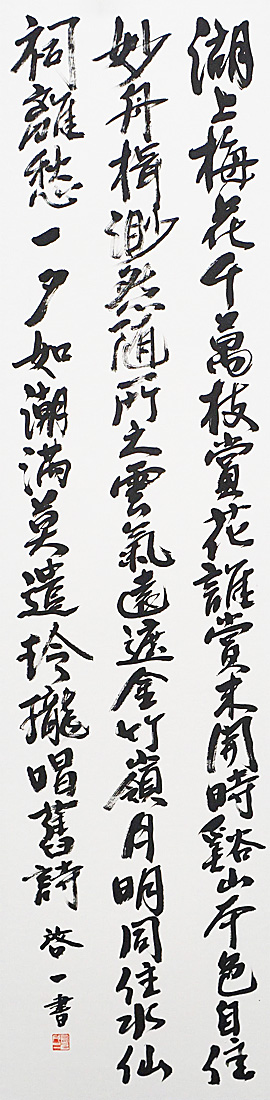 湖上梅花千萬枝賞花誰賞未開時谿山本色自佳
妙舟楫渺然随所之雲氣遠遮金竹嶺月明同住水仙
祠離愁一夕如潮満莫遣玲瓏唱舊詩 啓一書